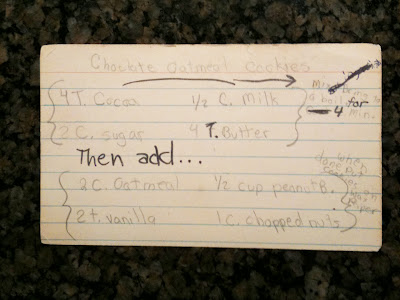 Choclate Oatmeal Cookies
4 T. Cocoa 1/2 C. Milk
2 C. sugar 4 T. Butter
Mix, bring to
a boil for
4 min.
Then add...
2 C. Oatmeal 1/2 cup peanut B.
2 t. vanilla 1 C. chopped nuts
when
done put
on wax
paper